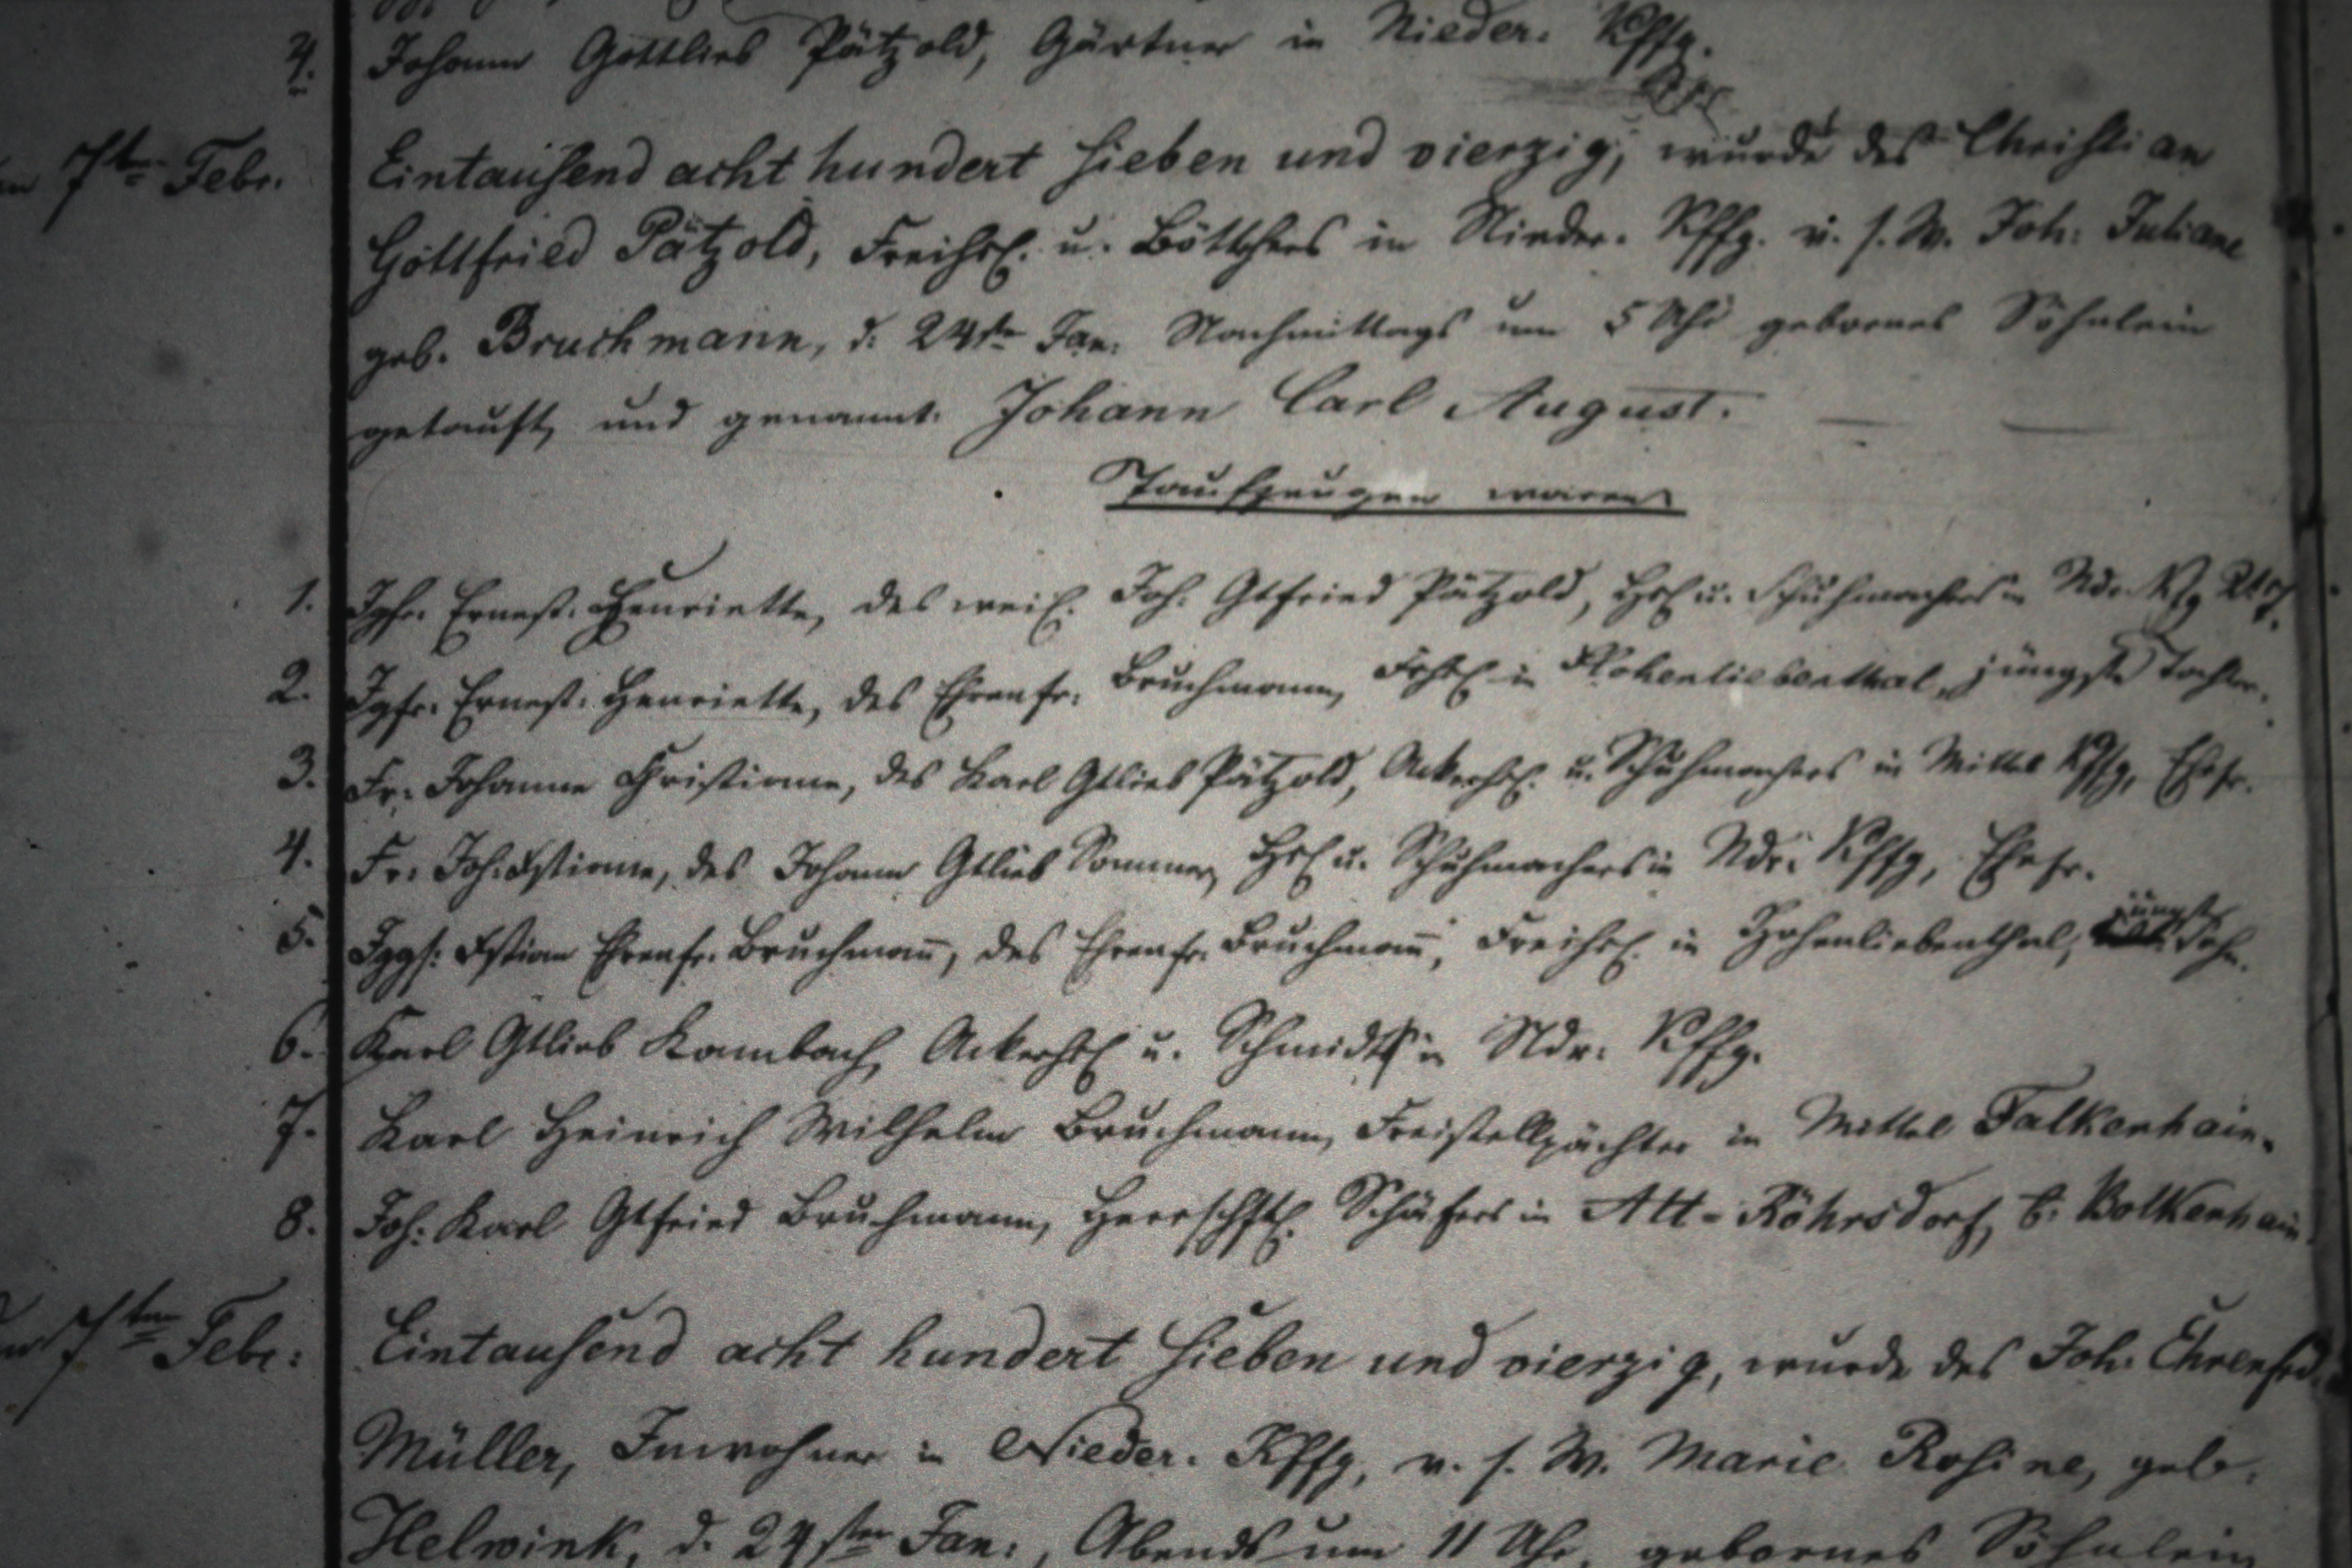 4. Johann Gottlieb Pätzold, Gärtner in Nieder. Kffg.
7ten Febr. Eintausend acht hundert sieben und vierzig, wurde des Christian
Gottfried Pätzold, Freihsl. u. Böttchers in Nieder. Kffg. v. s. W. Joh: Juliane
geb. Bruchmann, d. 24ste Jan: Nachmittags um 5 Uhr gebornes Söhnlein
getauft, und genannt: Johann Carl August.
Taufzeugen waren
1. Jgfr. Ernest. Henriette, des weil. Joh. Gtfried Pätzold, Hsl u. Schuhmachers in Ndr.
2. Jgfr. Ernest. Henriette, des Ehrenfr. Bruchmann, Frhsl in Hohenliebenthal, jüngste Tochter.
3. Fr. Johanne Christiane, des Karl Gtlieb Pätzold, Ackerhsl. u. Schuhmachers in Mittel Kffg, Ehefr.
4. Fr. Joh. Xstiane, des Johann Gtlieb Sommer, Hsl u. Schuhmachers in Ndr. Kffg, Ehefr.
5. Jggs. Xstian Ehrenfr. Bruchmañ, des Ehrenfr. Bruchmañ, Freihsl. in Hohenliebenthal, jüngster Sohn.
6. Karl Gtlieb Kambach, Ackerhsl u. Schmidt in Ndr. Kffg.
7. Karl Heinrich Wilhelm Bruchmann, Freistellpächter in Mittel Falkenhain.
8. Joh. Karl Gtfried Bruchmann, Herrschftl. Schäfers in Alt-Röhrsdorf, b. Bolkenhain
7ten Febr: Eintausend acht hundert sieben und vierzig, wurde des Joh. Ehrenfrd.
Müller, Inwohner in Nieder. Kffg, v. s. W. Marie Rosine, geb.
Helwink, d. 24sten Jan:, Abends um 11 Uhr, gebornes Söhnlein